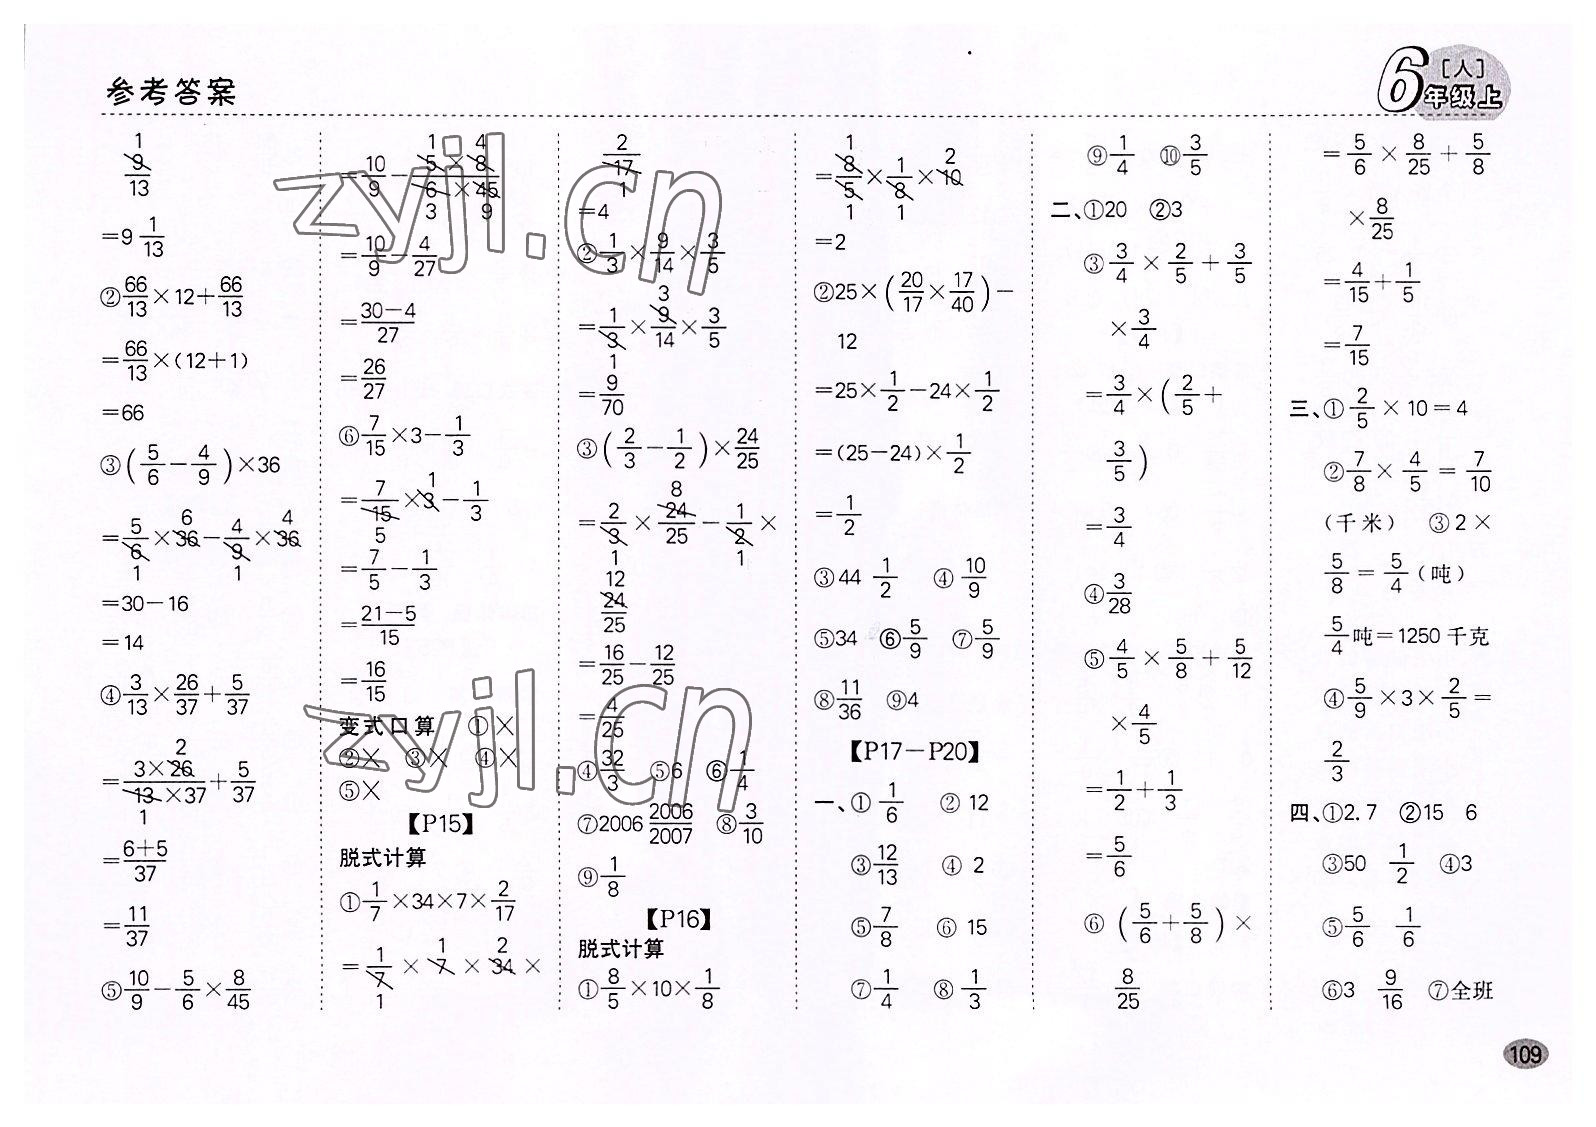 参考答案
6[人]
年级上
1
9/13
=9 1/13
②66/13×12+66/13
=66/13×(12+1)
=66
③(5/6-4/9)×36
6 4
=5/6×36-4/9×36
1 1
=30-16
=14
④3/13×26/37+5/37
2
=3×26/13×37+5/37
1
=6+5/37
=11/37
⑤10/9-5/6×8/45
1 4
=10/9-5×8/6×45
3 9
=10/9-4/27
=30-4/27
=26/27
⑥7/15×3-1/3
1
=7/15×3-1/3
5
=7/5-1/3
=21-5/15
=16/15
变式口算 ①×
②× ③× ④×
⑤×
【P15】
脱式计算
①1/7×34×7×2/17
1 2
=1/7×7×34×
1
2
2/17
1
=4
②1/3×9/14×3/5
3
=1/3×9/14×3/5
1
=9/70
③(2/3-1/2)×24/25
8
=2/3×24/25-1/2×
1 1
12
24/25
=16/25-12/25
=4/25
④32/3 ⑤6 ⑥1/4
⑦2006 2006/2007 ⑧3/10
⑨1/8
【P16】
脱式计算
①8/5×10×1/8
1 2
=8/5×1/8×10
1 1
=2
②25×(20/17×17/40)-
12
=25×1/2-24×1/2
=(25-24)×1/2
=1/2
③44 1/2 ④10/9
⑤34 ⑥5/9 ⑦5/9
⑧11/36 ⑨4
【P17-P20】
一、①1/6 ②12
③12/13 ④2
⑤7/8 ⑥15
⑦1/4 ⑧1/3
⑨1/4 ⑩3/5
二、①20 ②3
③3/4×2/5+3/5
×3/4
=3/4×(2/5+
3/5)
=3/4
④3/28
⑤4/5×5/8+5/12
×4/5
=1/2+1/3
=5/6
⑥(5/6+5/8)×
8/25
=5/6×8/25+5/8
×8/25
=4/15+1/5
=7/15
三、①2/5×10=4
②7/8×4/5=7/10
(千米) ③2×
5/8=5/4(吨)
5/4吨=1250千克
④5/9×3×2/5=
2/3
四、①2.7 ②15 6
③50 1/2 ④3
⑤5/6 1/6
⑥3 9/16 ⑦全班
109
zyjl.cn
zyjl.cn